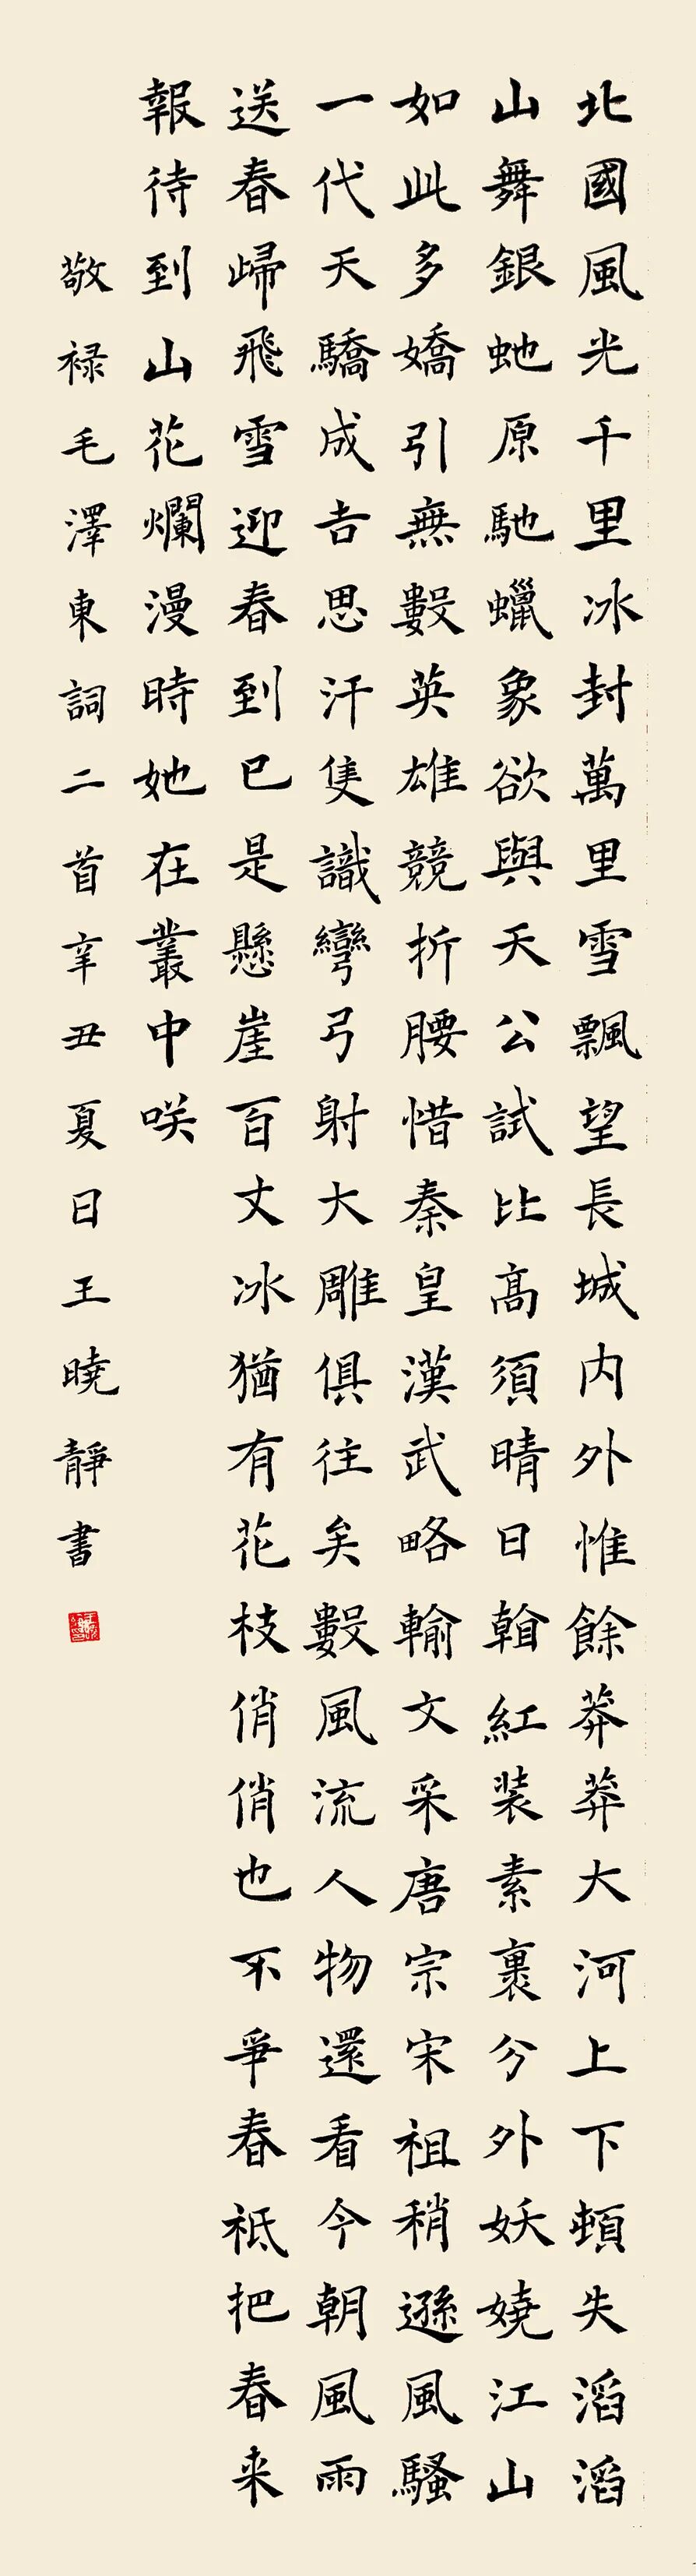 北國風光千里冰封萬里雪飄望長城内外惟餘莽莽大河上下頓失滔滔
山舞銀虵原馳蠟象欲與天公試比高須晴日看紅装素裹分外妖嬈江山
如此多嬌引無數英雄競折腰惜秦皇漢武略輸文采唐宗宋祖稍遜風騷
一代天驕成吉思汗隻識彎弓射大雕俱往矣數風流人物還看今朝風雨
送春歸飛雪迎春到已是懸崖百丈冰猶有花枝俏俏也不爭春祗把春来
報待到山花爛漫時她在叢中咲
敬禄毛澤東詞二首辛丑夏日王曉靜書